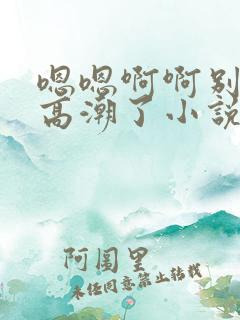 嗯嗯啊啊别
高潮了小说
阿图里
未经同意禁止转载